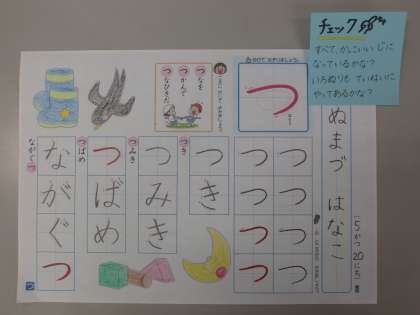 チェック
すべて、かっこいいじに
なっているかな?
いろぬりも ていねいに
やってあるかな?
ぬまづ はなこ
5がつ 20にち
つ
つ つ
つ つ
つ つ
つ つ
つき
つみき
つばめ
ながぐつ
つなを
つかんで
つなひきだ
つき
つみき
つばめ
ながぐつ
つ